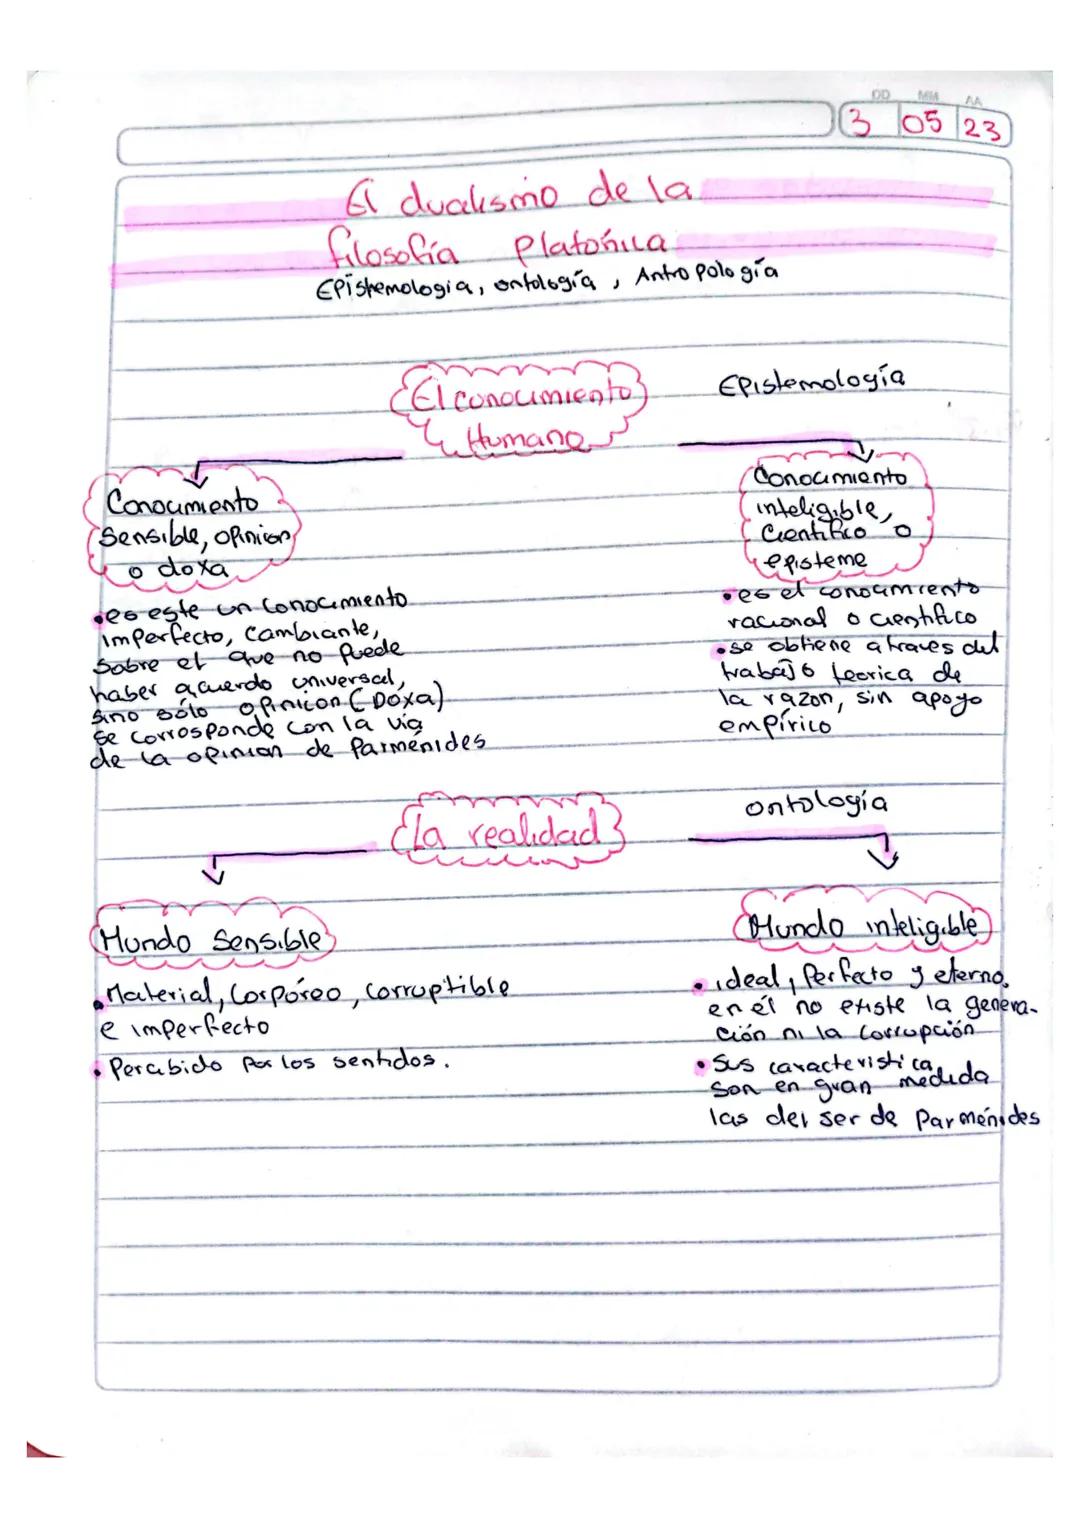 DD MM AA
3 05 23
El dualismo de la
filosofía Platónica
Epistemologia, ontología, Antropología
El conocimiento
Humano
Epistemología
Conocimiento
Sensible, opinion
o doxa
•es este un conocimiento
imperfecto, Cambiante,
Sobre el que no puede
haber acuerdo universal,
sino sólo opinicon (Dóxa)
se corresponde con la vía
de la opinion de Parménides
Conocimiento
inteligible,
Cientifico o
episteme
•es el conocimiento
racional o cientifico
•se obtiene a traves del
trabajo teorica de
la razon, sin apoyo
empírico
La realidad
ontología
Mundo Sensible
•Material, Corpóreo, corruptible
e imperfecto
•Percibido por los sentidos.
Mundo inteligible
•ideal, Perfecto y eterno,
en él no existe la genera-
ción ni la corrupción
•Sus caracteristica
son en gran medida
las del ser de Parménides